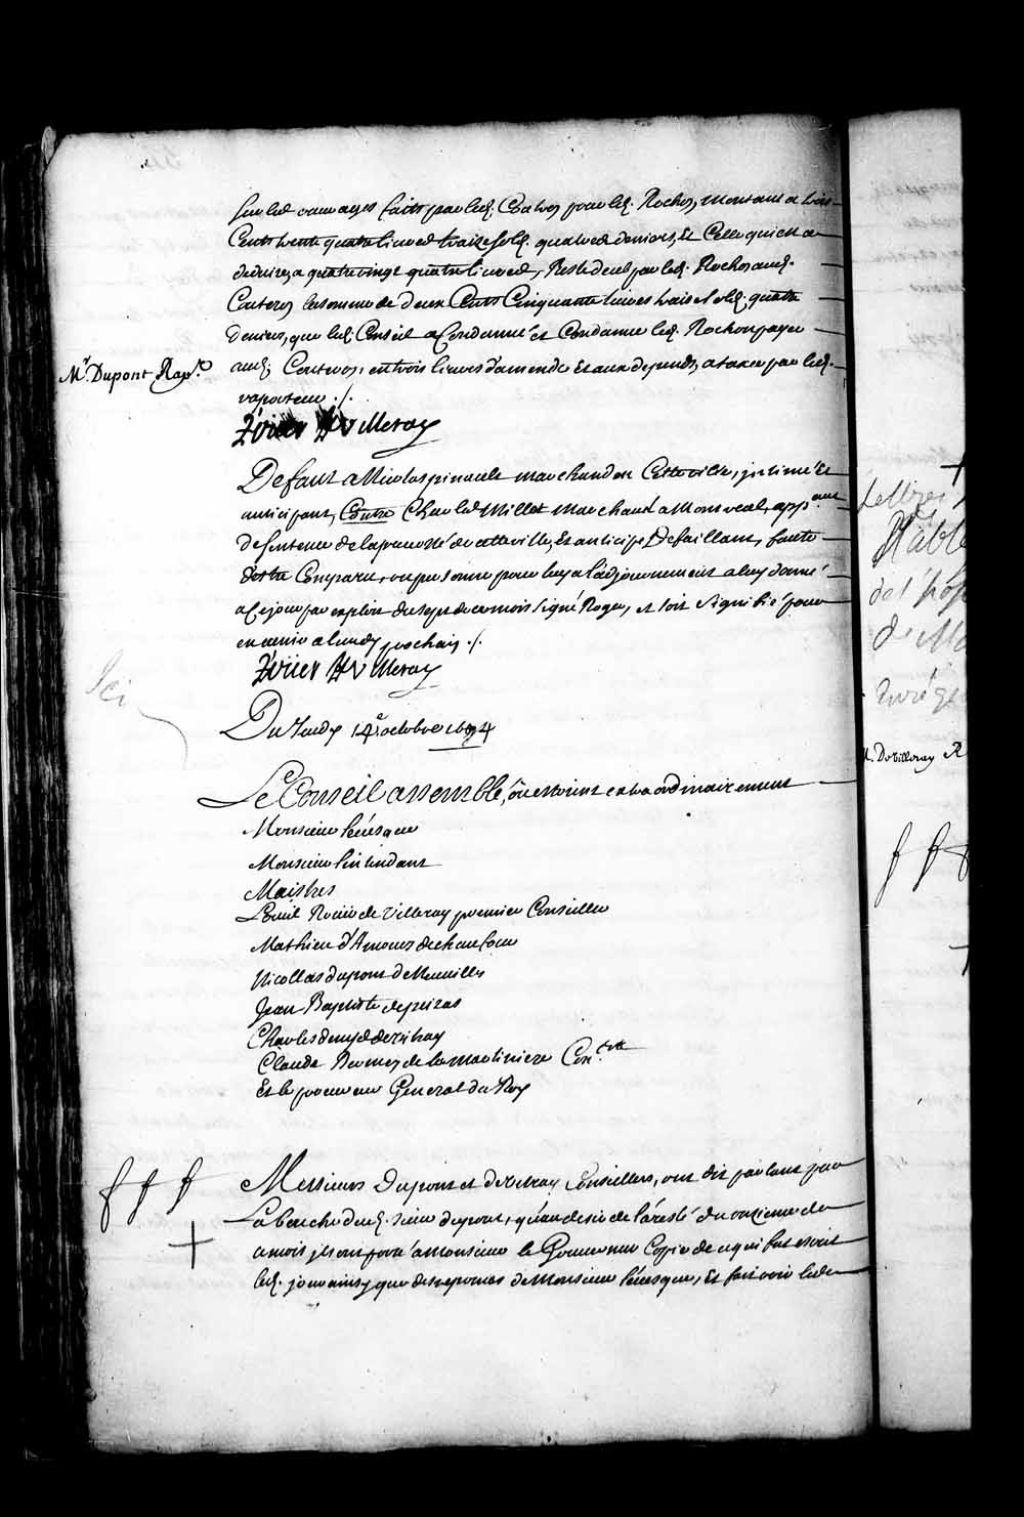 sur les ouvrages faits par led. Contros pour led. Rochon, montant a trois
Cents trente quatre livres treize sols quatre deniers, Et Celle qui est a
deduire a quatrevingt quatre livres, Reste deub par led. Rochon aud.
Conteros la somme de deux Cents Cinquante livres treis sols quatre
deniers, que led. Conseil a Condamné et Condamne led. Rochon payer
Mr. Dupont Rapr.
aud. Conteros, en trois livres d'amende Et aux depends, a taxer par led.
raporteur ./.
Defaut a Nicolas pinaule marchand en Cette ville, intimé et
anticipant, Contre Charles Millet Marchand a Monreal, appant
de sentence de la prevosté de cette ville, Et anticipé Defaillant, faute
d'estre Comparu, ou personne pour luy a l'adjournement a luy donné
a ce jour par exploit du sept de ce mois signé Roger, et soit signifié pour
en venir a lundy prochain ./.
Ici
Du Jeudy 14e octobre 1694
Le Conseil assemblé, ou estoient extraordinairement
Monsieur l'evesque
Monsieur l'intendant
Maistres
Louis Roüer de Villeray premier Conseiller
Mathieu d'Amours deschaufour
Nicollas dupont de Neuville
Jean Baptiste depeiras
Charles denys de vitray
Claude Bermen de la martiniere Coners
Et le procureur General du Roy
Messieurs Dupont et de vitray Conseillers, ont dit parlant par
La bouche dud. sieur dupont, qu'au desir de l'aresté du onzieme de
ce mois ils ont porté a monsieur le Gouverneur Coppie de ce qui fut escrit
led. jour ainsy que des reponses de Monsieur l'evesque, Et fait voir led.
Lettres
d'Etabl
de l'hop
de Mo
M. De Villeray R